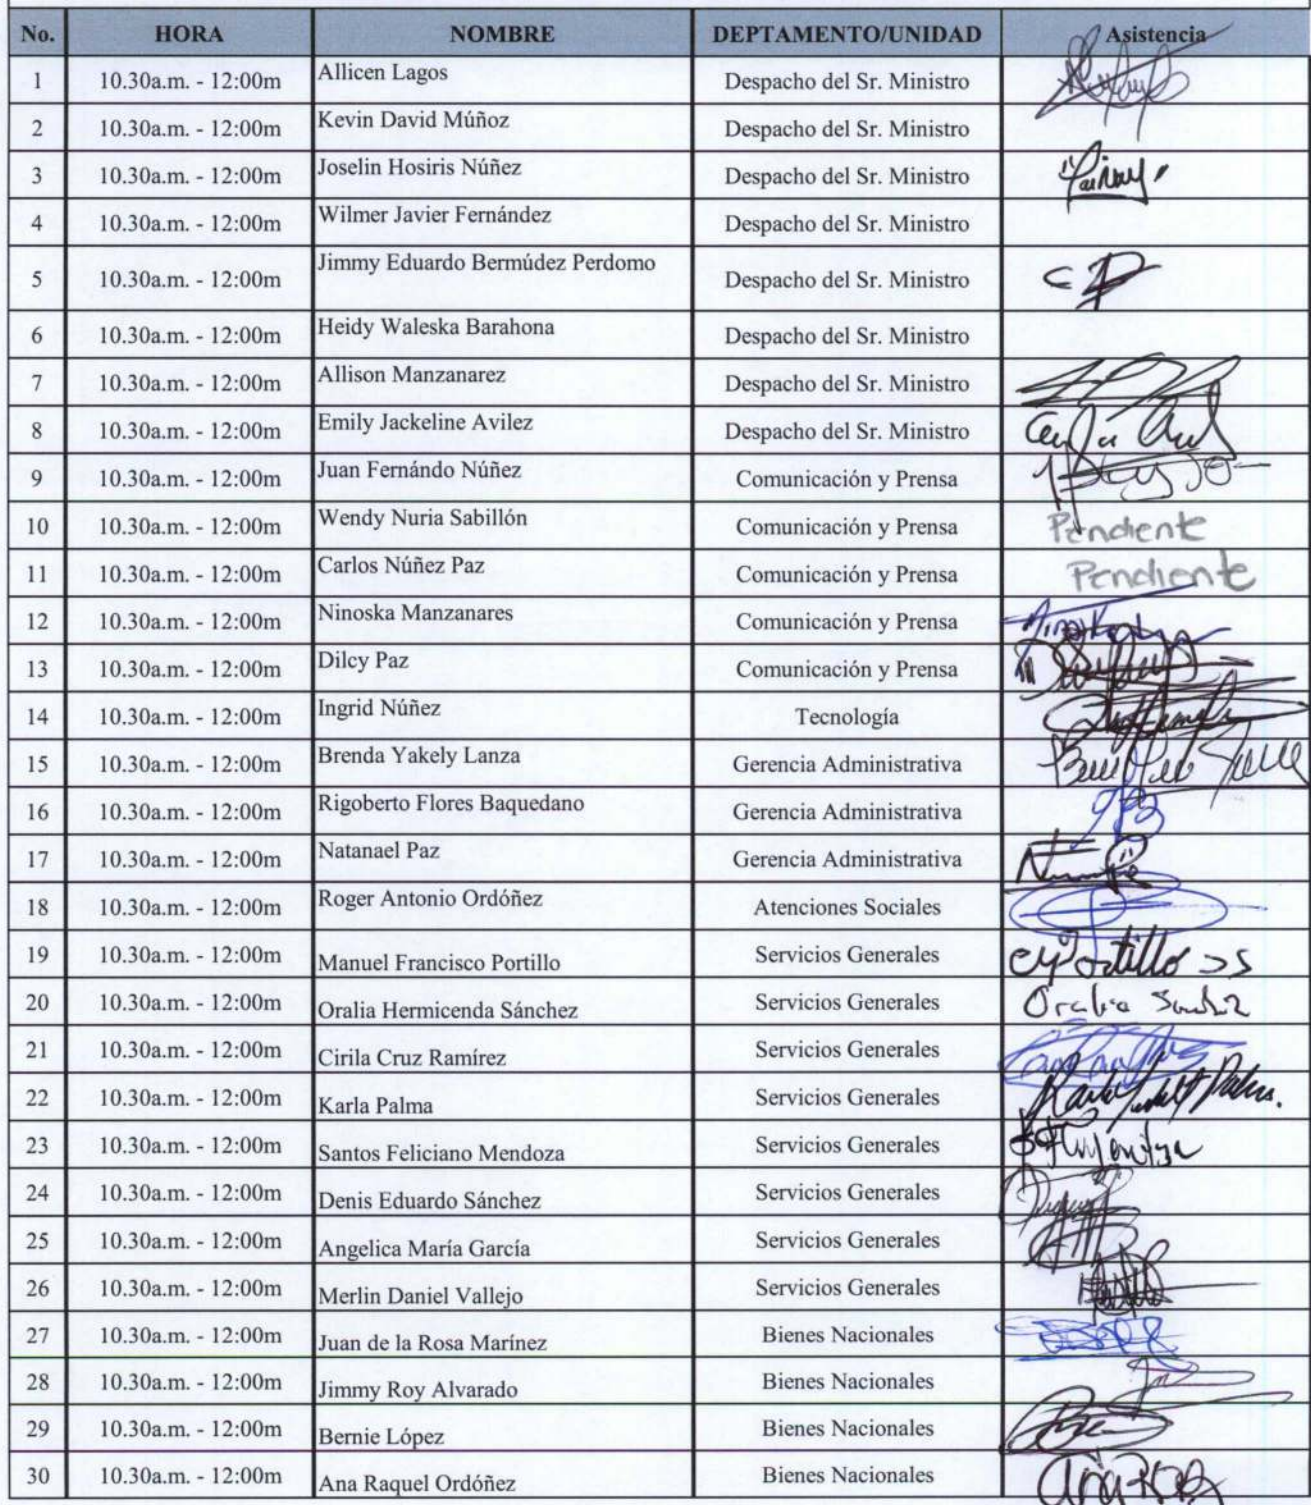 No. HORA NOMBRE DEPTAMENTO/UNIDAD Asistencia
1 10.30a.m. - 12:00m Allicen Lagos Despacho del Sr. Ministro
2 10.30a.m. - 12:00m Kevin David Múñoz Despacho del Sr. Ministro
3 10.30a.m. - 12:00m Joselin Hosiris Núñez Despacho del Sr. Ministro
4 10.30a.m. - 12:00m Wilmer Javier Fernández Despacho del Sr. Ministro
5 10.30a.m. - 12:00m Jimmy Eduardo Bermúdez Perdomo Despacho del Sr. Ministro
6 10.30a.m. - 12:00m Heidy Waleska Barahona Despacho del Sr. Ministro
7 10.30a.m. - 12:00m Allison Manzanarez Despacho del Sr. Ministro
8 10.30a.m. - 12:00m Emily Jackeline Avilez Despacho del Sr. Ministro
9 10.30a.m. - 12:00m Juan Fernándo Núñez Comunicación y Prensa
10 10.30a.m. - 12:00m Wendy Nuria Sabillón Comunicación y Prensa Pendiente
11 10.30a.m. - 12:00m Carlos Núñez Paz Comunicación y Prensa Pendiente
12 10.30a.m. - 12:00m Ninoska Manzanares Comunicación y Prensa
13 10.30a.m. - 12:00m Dilcy Paz Comunicación y Prensa
14 10.30a.m. - 12:00m Ingrid Núñez Tecnología
15 10.30a.m. - 12:00m Brenda Yakely Lanza Gerencia Administrativa
16 10.30a.m. - 12:00m Rigoberto Flores Baquedano Gerencia Administrativa
17 10.30a.m. - 12:00m Natanael Paz Gerencia Administrativa
18 10.30a.m. - 12:00m Roger Antonio Ordóñez Atenciones Sociales
19 10.30a.m. - 12:00m Manuel Francisco Portillo Servicios Generales
20 10.30a.m. - 12:00m Oralia Hermicenda Sánchez Servicios Generales
21 10.30a.m. - 12:00m Cirila Cruz Ramírez Servicios Generales
22 10.30a.m. - 12:00m Karla Palma Servicios Generales
23 10.30a.m. - 12:00m Santos Feliciano Mendoza Servicios Generales
24 10.30a.m. - 12:00m Denis Eduardo Sánchez Servicios Generales
25 10.30a.m. - 12:00m Angelica María García Servicios Generales
26 10.30a.m. - 12:00m Merlin Daniel Vallejo Servicios Generales
27 10.30a.m. - 12:00m Juan de la Rosa Marínez Bienes Nacionales
28 10.30a.m. - 12:00m Jimmy Roy Alvarado Bienes Nacionales
29 10.30a.m. - 12:00m Bernie López Bienes Nacionales
30 10.30a.m. - 12:00m Ana Raquel Ordóñez Bienes Nacionales